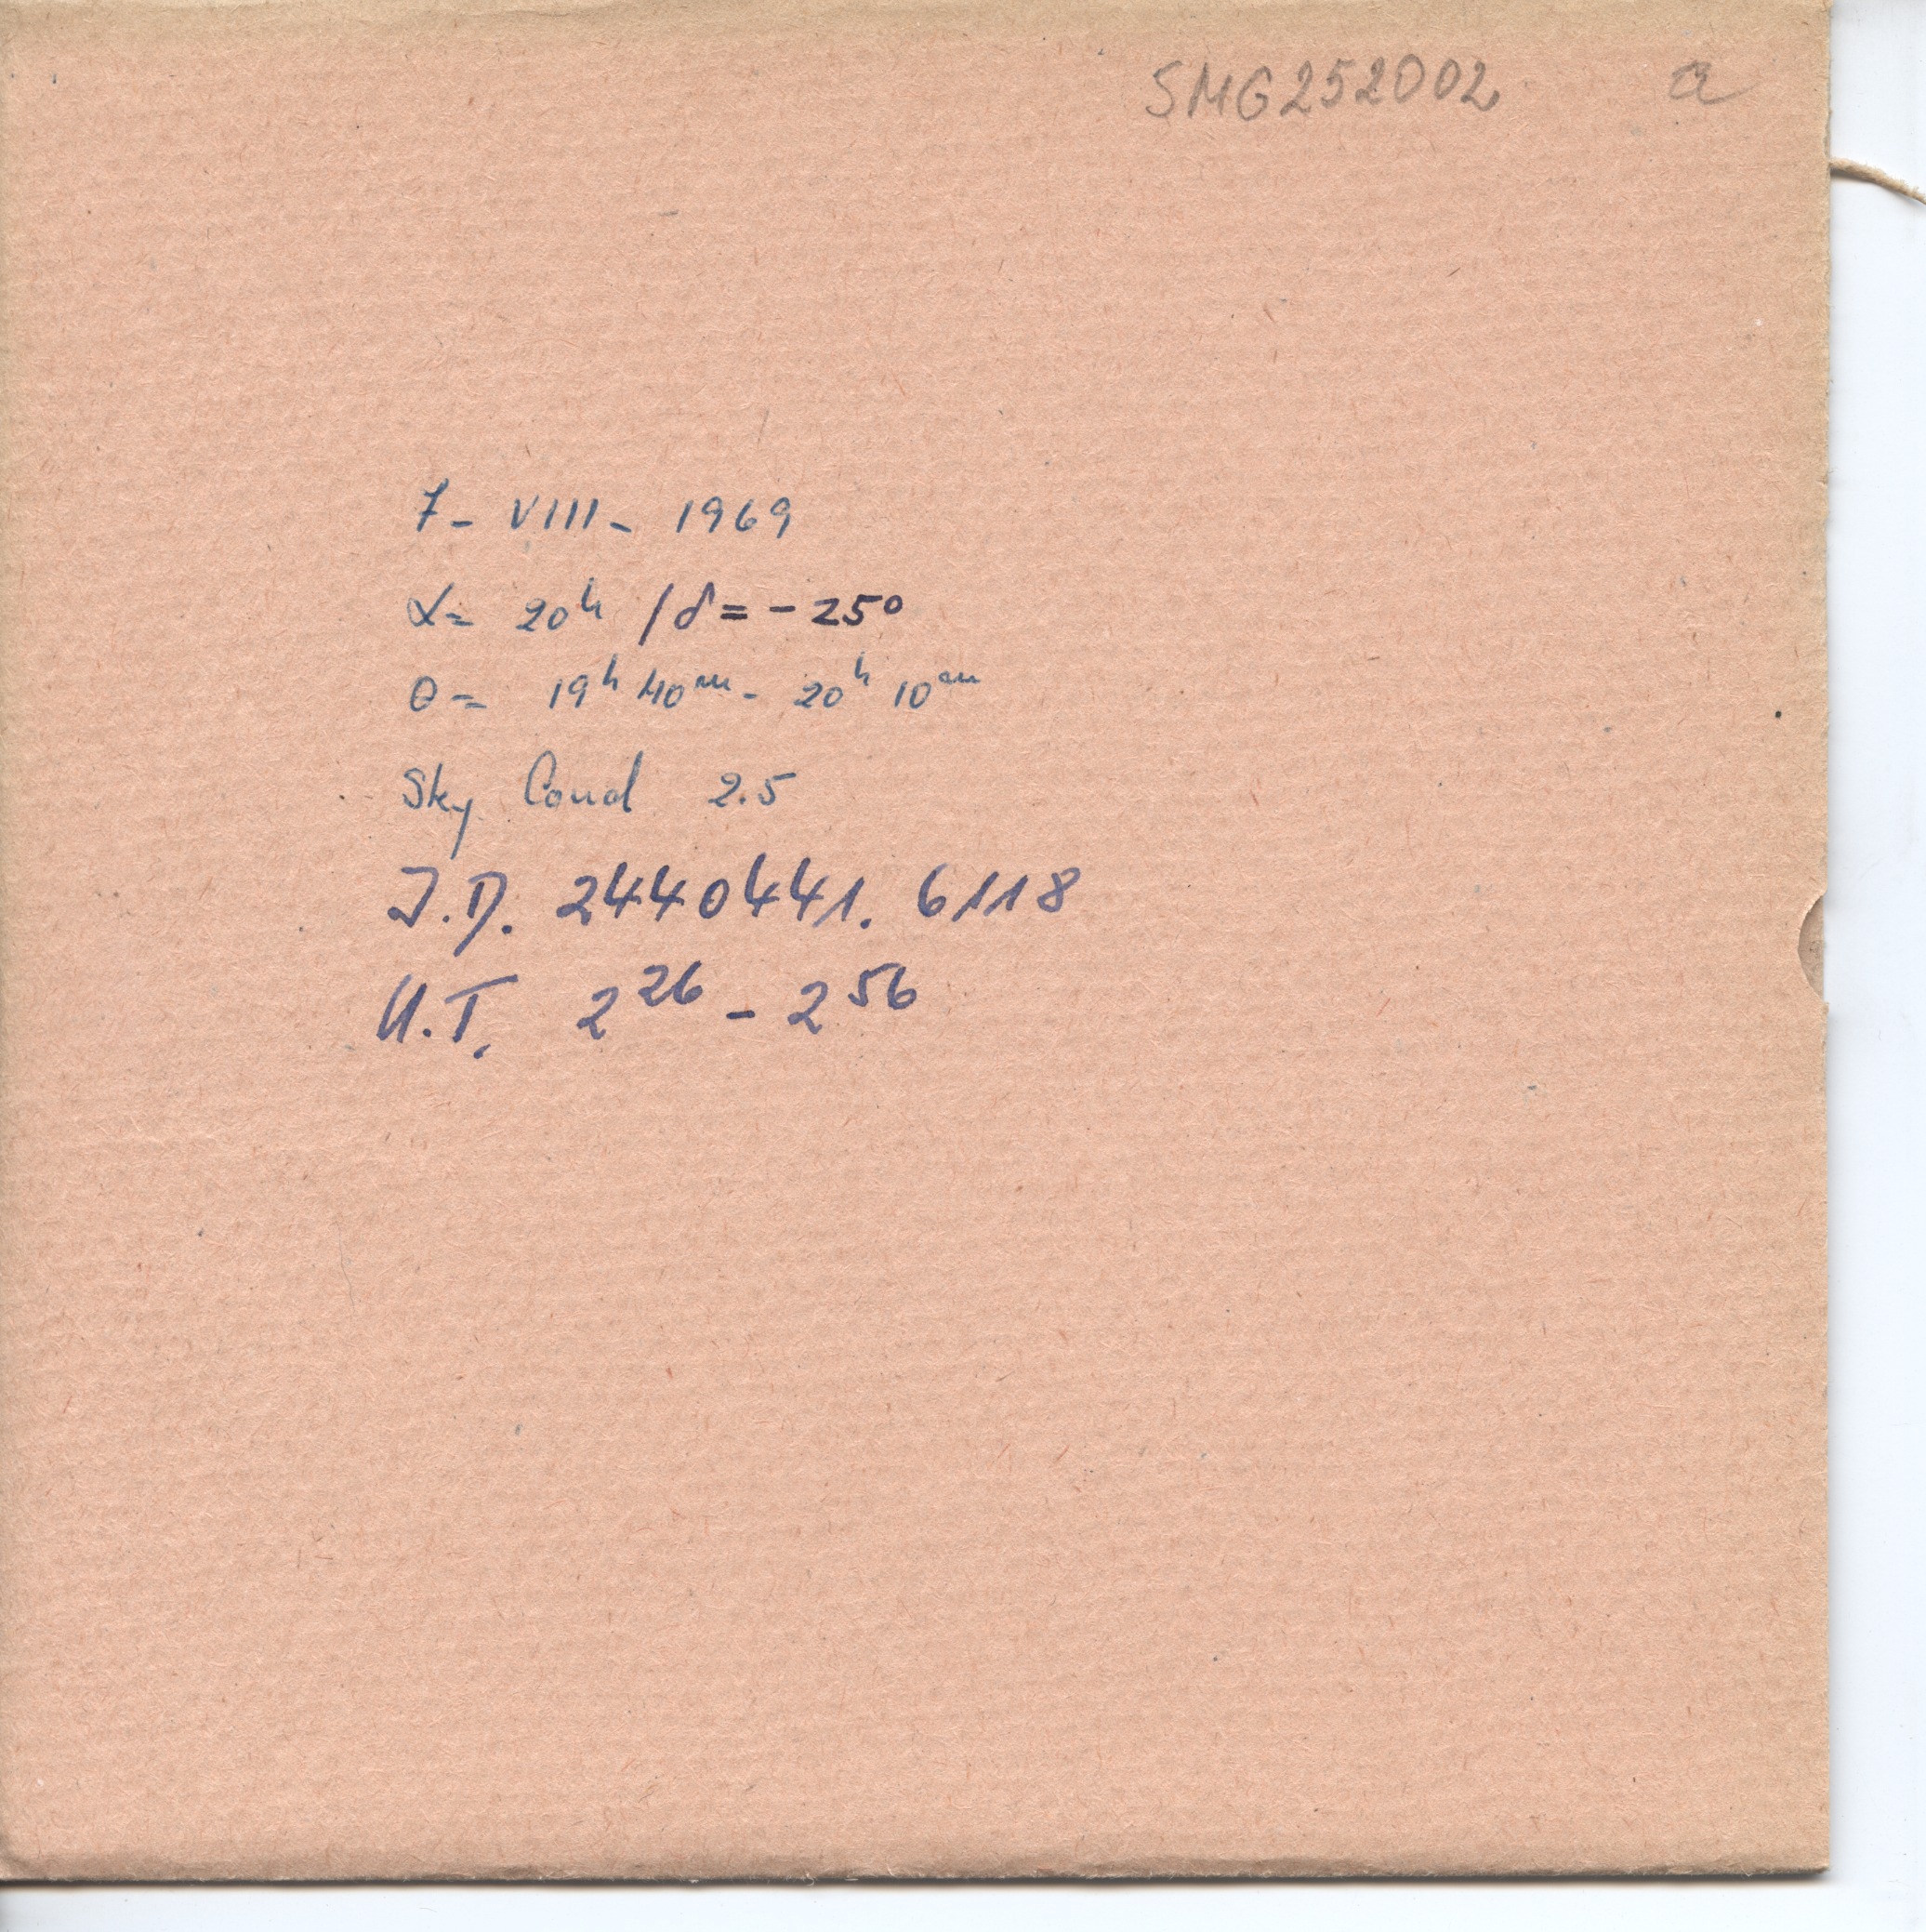 SMG252002 a
7 - VIII - 1969
α = 20ʰ / δ = - 25°
θ = 19ʰ 40ᵐ - 20ʰ 10ᵐ
Sky Cond 2.5
J.D. 2440441.6118
U.T. 2²⁶ - 2⁵⁶